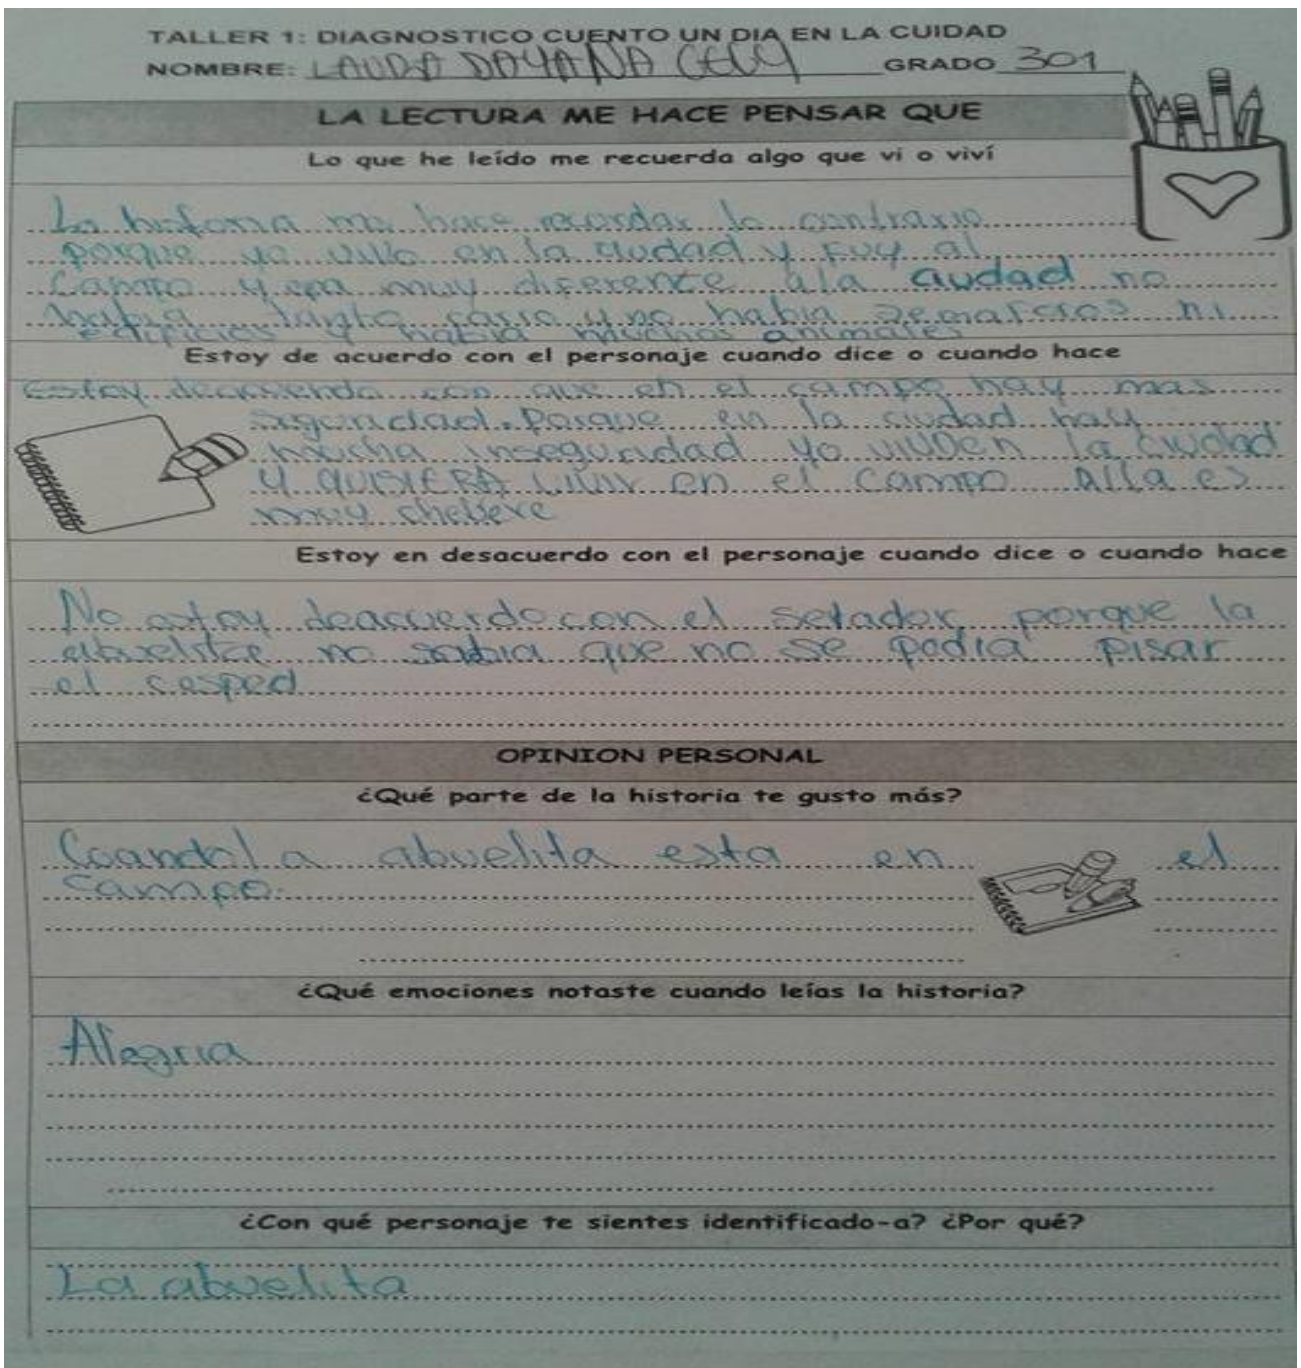 TALLER 1: DIAGNOSTICO CUENTO UN DIA EN LA CUIDAD
NOMBRE: LAURA DAYANA GRADO 301
LA LECTURA ME HACE PENSAR QUE
Lo que he leído me recuerda algo que vi o viví
La historia me hace recordar lo contrario
porque yo vivo en la ciudad y Fuy al
Campo y era muy diferente a la ciudad no
habia tanto carro y no habia semaforos ni
edificios y habia muchos animales
Estoy de acuerdo con el personaje cuando dice o cuando hace
Estoy deacuerdo con que en el campo hay mas
seguridad. Porque en la ciudad hay
mucha inseguridad yo vivo en la ciudad
y QUISIERA vivir en el campo alla es
muy chebere
Estoy en desacuerdo con el personaje cuando dice o cuando hace
No estoy deacuerdo con el setador porque la
abuelita no sabia que no se podia pisar
el cesped
OPINION PERSONAL
¿Qué parte de la historia te gusto más?
Cuando la abuelita esta en el
campo.
¿Qué emociones notaste cuando leías la historia?
Alegria
¿Con qué personaje te sientes identificado-a? ¿Por qué?
La abuelita